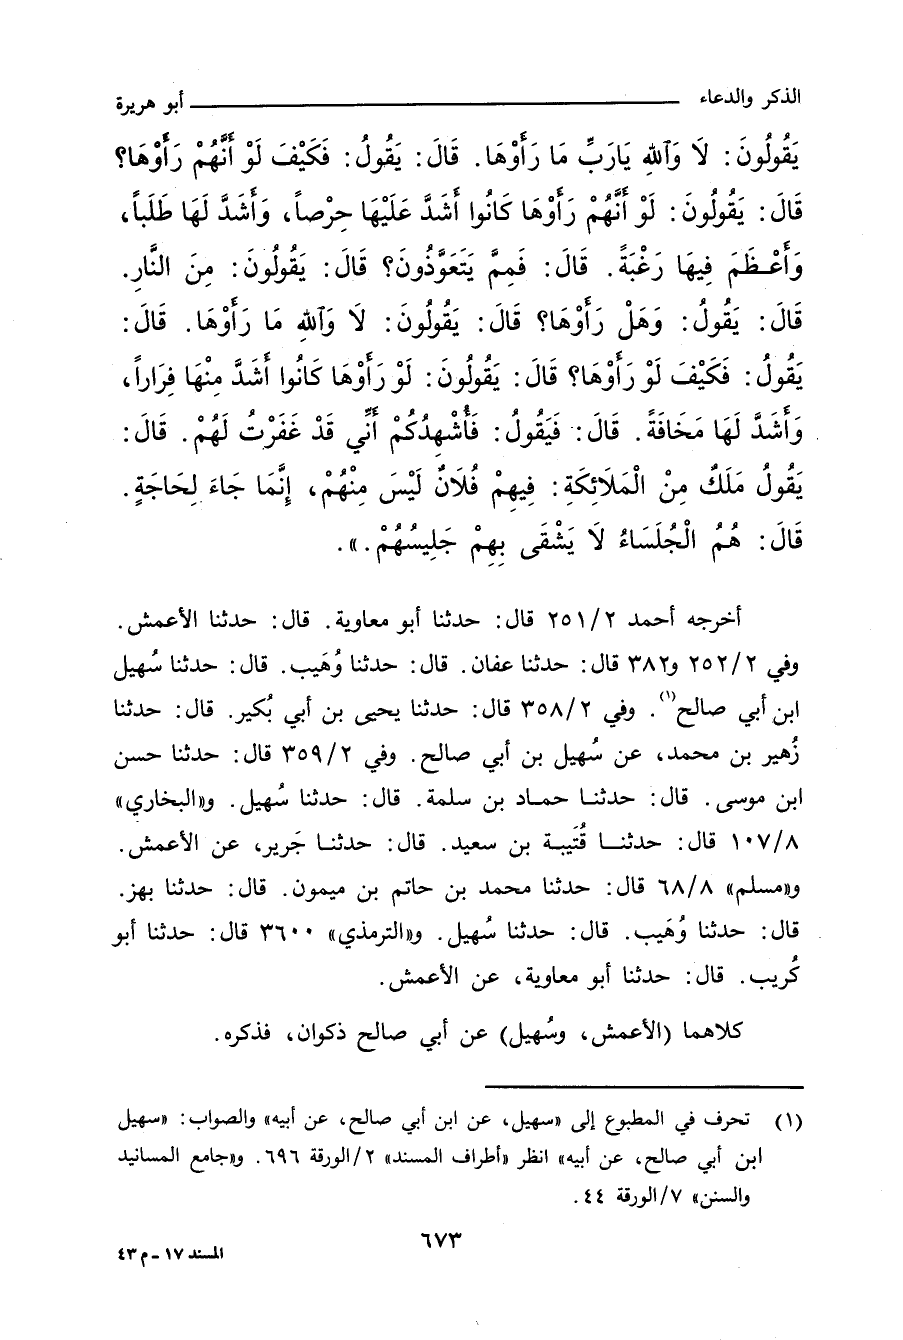 الذكر والدعاء ــــــــــــ أبو هريرة
يَقُولُونَ: لَا وَٱللهِ يَارَبِّ مَا رَأَوْهَا. قَالَ: يَقُولُ: فَكَيْفَ لَوْ أَنَّهُمْ رَأَوْهَا؟
قَالَ: يَقُولُونَ: لَوْ أَنَّهُمْ رَأَوْهَا كَانُوا أَشَدَّ عَلَيْهَا حِرْصاً، وَأَشَدَّ لَهَا طَلَباً،
وَأَعْظَمَ فِيهَا رَغْبَةً. قَالَ: فَمِمَّ يَتَعَوَّذُونَ؟ قَالَ: يَقُولُونَ: مِنَ النَّارِ.
قَالَ: يَقُولُ: وَهَلْ رَأَوْهَا؟ قَالَ: يَقُولُونَ: لَا وَٱللهِ مَا رَأَوْهَا. قَالَ:
يَقُولُ: فَكَيْفَ لَوْ رَأَوْهَا؟ قَالَ: يَقُولُونَ: لَوْ رَأَوْهَا كَانُوا أَشَدَّ مِنْهَا فِرَاراً،
وَأَشَدَّ لَهَا مَخَافَةً. قَالَ: فَيَقُولُ: فَأُشْهِدُكُمْ أَنِّي قَدْ غَفَرْتُ لَهُمْ. قَالَ:
يَقُولُ مَلَكٌ مِنْ الْمَلَائِكَةِ: فِيهِمْ فُلَانٌ لَيْسَ مِنْهُمْ، إِنَّمَا جَاءَ لِحَاجَةٍ.
قَالَ: هُمُ الْجُلَسَاءُ لَا يَشْقَى بِهِمْ جَلِيسُهُمْ.».
أخرجه أحمد ٢٥١/٢ قال: حدثنا أبو معاوية. قال: حدثنا الأعمش.
وفي ٢٥٢/٢ و٣٨٢ قال: حدثنا عفان. قال: حدثنا وُهَيب. قال: حدثنا سُهيل
ابن أبي صالح(١). وفي ٣٥٨/٢ قال: حدثنا يحيى بن أبي بُكير. قال: حدثنا
زُهير بن محمد، عن سُهيل بن أبي صالح. وفي ٣٥٩/٢ قال: حدثنا حسن
ابن موسى. قال: حدثنا حماد بن سلمة. قال: حدثنا سُهيل. و«البخاري»
١٠٧/٨ قال: حدثنا قُتَيبة بن سعيد. قال: حدثنا جَرير، عن الأعمش.
و«مسلم» ٦٨/٨ قال: حدثنا محمد بن حاتم بن ميمون. قال: حدثنا بهز.
قال: حدثنا وُهَيب. قال: حدثنا سُهيل. و«الترمذي» ٣٦٠٠ قال: حدثنا أبو
كُريب. قال: حدثنا أبو معاوية، عن الأعمش.
كلاهما (الأعمش، وسُهيل) عن أبي صالح ذكوان، فذكره.
(١) تحرف في المطبوع إلى «سهيل، عن ابن أبي صالح، عن أبيه» والصواب: «سهيل
ابن أبي صالح، عن أبيه» انظر «أطراف المسند» ٢/الورقة ٦٩٦. و«جامع المسانيد
والسنن» ٧/الورقة ٤٤.
٦٧٣
المسند ١٧ - م ٤٣